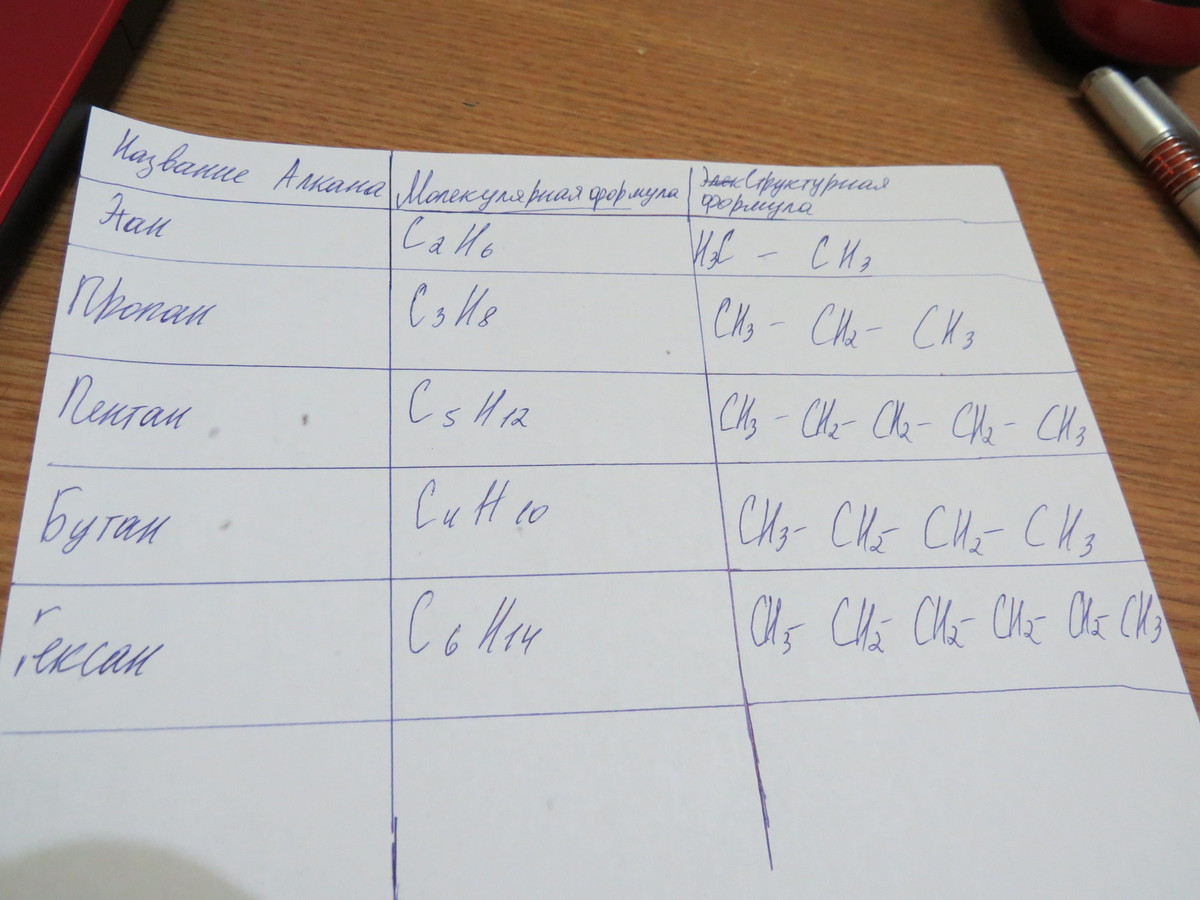 Название Алкана | Молекулярная формула | Структурная
формула
Этан | C₂H₆ | H₃C – CH₃
Пропан | C₃H₈ | CH₃ – CH₂ – CH₃
Пентан | C₅H₁₂ | CH₃ – CH₂ – CH₂ – CH₂ – CH₃
Бутан | C₄H₁₀ | CH₃ – CH₂ – CH₂ – CH₃
Гексан | C₆H₁₄ | CH₃ – CH₂ – CH₂ – CH₂ – CH₂ – CH₃